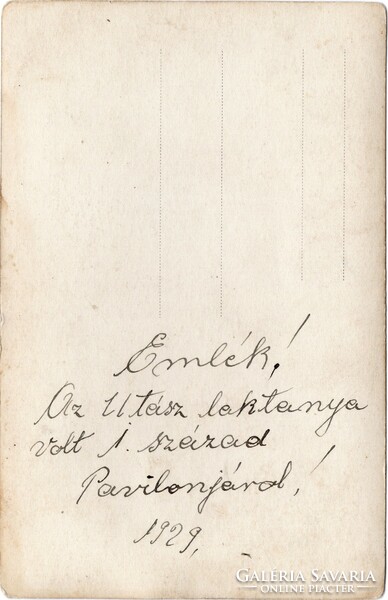 Emlék!
Az Utász laktanya
volt 1. század
Pavilonjárol!
1929,
GALÉRIA SAVARIA
ONLINE PIACTÉR